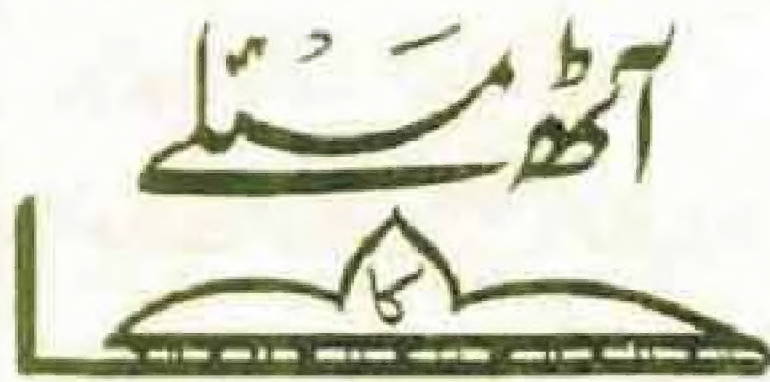 آٹھ مَسْئلے
کا